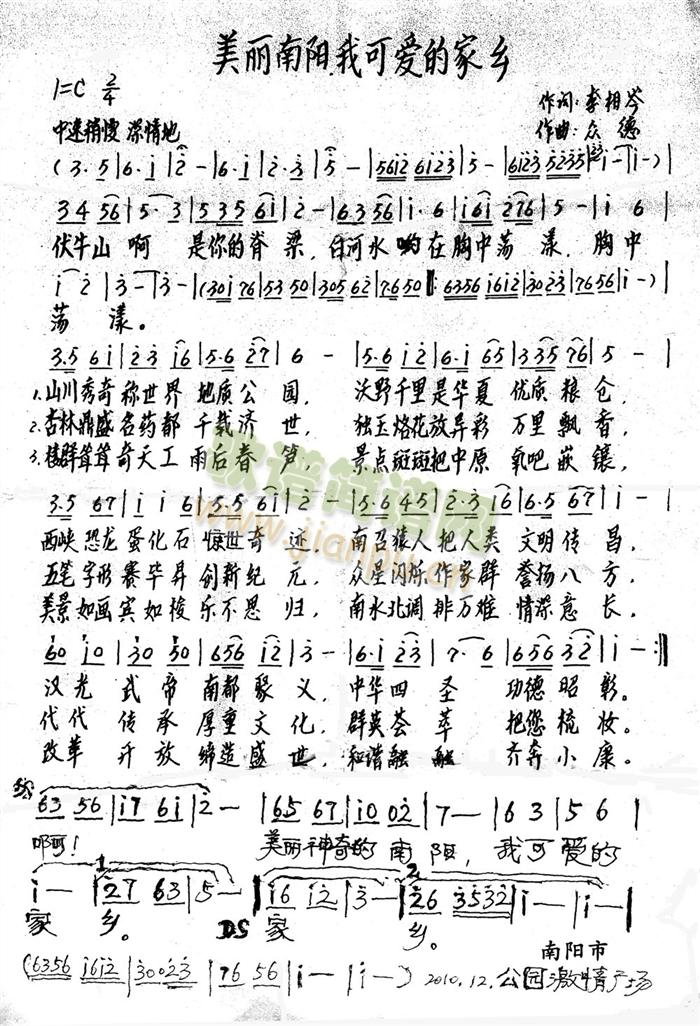 美丽南阳,我可爱的家乡
1=C 2/4
作词:李相岑
中速稍慢 深情地
作曲:众 德
(3·5|6·i|2-|6·i|2·3|5-|5612 6123|5-|6123 5235|i-|i-)
3 4 56|5·3|5 35 61|2-|6 3 56|i·6|i6i 276|5-|i 6
伏牛山 啊 是你的脊 梁,白河水 哟在胸中荡 漾,胸中
i 2|3-|3-|(30i 76|53 50|305 62|76 50‖:6356 i6i2|30 23|76 56|i-)
荡 漾。
3·5 6i|2·3 i6|5·6 27|6-|5·6 i2|6·i 65|3 35 76|5-|
1.山川秀奇称世界 地质公 园, 沃野千里是华夏 优质粮仓,
2.杏林鼎盛名药都 千载济 世, 独玉烙花放异彩 万里飘香,
3.楼群茸茸奇天工 雨后春 笋, 景点斑斑把中原 氧吧嵌镶,
3·5 67|i i 6|5·5 6i|2-|5·6 45|2·3 i6|6·5 67|i-|
西峡恐龙蛋化石 惊世奇 迹, 南召猿人把人类 文明传昌,
五笔字形赛毕昇 创新纪 元, 众星闪烁作家群 誉扬八方,
美景如画宾如梭 乐不思 归, 南水北调排万难 情深意长,
60 i0|30 50|656 i2|3-|6·i 23|7·6|656 32|i-:‖
汉光武帝南都聚义,中华四圣 功德昭彰。
代代传承厚重文化,群英荟萃 把您梳妆。
改革开放缔造盛世,和谐融融 齐奔小康。
63 56|i7 6i|2-|65 67|i0 02|7-|6 3|5 6|
啊! 美丽神奇的南阳,我可爱的
i-|27 63|5-‖i6 i2|3-|26 3532|i-|i-‖
家 乡。 D.S 家 乡。
南阳市
(6356 i6i2|30023|76 56|i-|i-) 2010.12.公园激情广场
歌谱简谱网
www.jianpu.cn